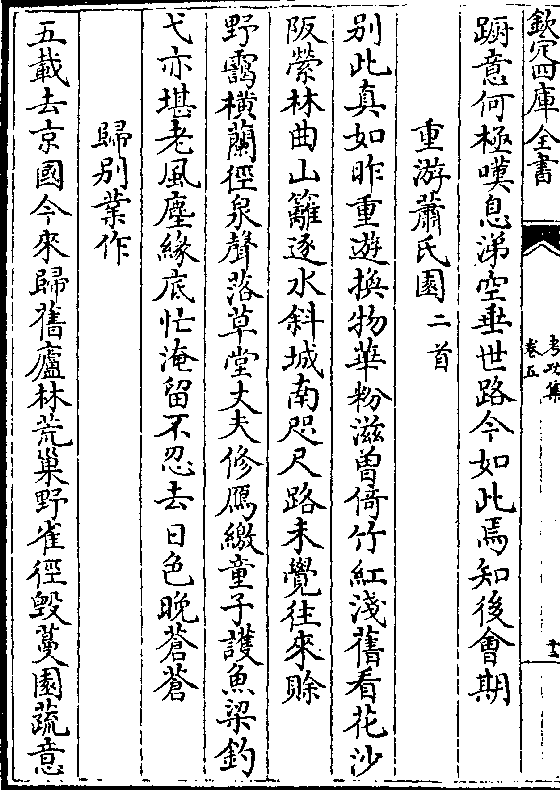 欽定四庫全書
考功集
卷五
蹰意何極嘆息涕空垂世路今如此焉知後會期
重游蕭氏園二首
別此真如昨重遊換物華粉滋曽倚竹紅淺舊看花沙
阪縈林曲山籬逐水斜城南咫尺路未覺往來賒
野靄橫蘭徑泉聲落草堂丈夫修鴈繳童子護魚梁釣
弋亦堪老風塵緣底忙淹留不忍去日色晚蒼蒼
歸別業作
五載去京國今來歸舊廬林荒巢野雀徑毀蔓園蔬意